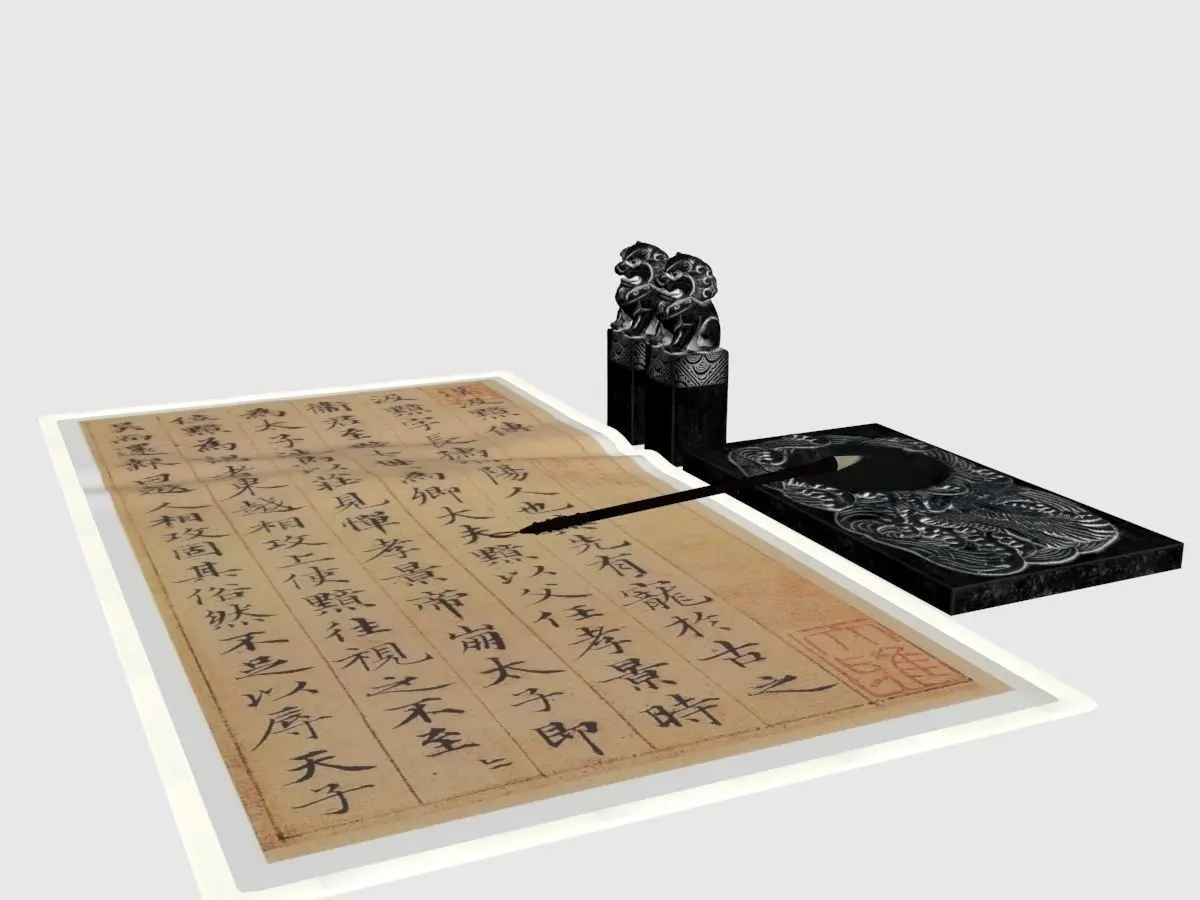 汲黯傳
汲黯字長孺陽人也其先有寵於古之
衛君至世為卿大夫黯以父任孝景時
為太子馬以莊見憚孝景帝崩太子即
位黯為者東越相攻上使黯往視之不至〻
吳而還報曰越人相攻固其俗然不足以辱天子
大雅